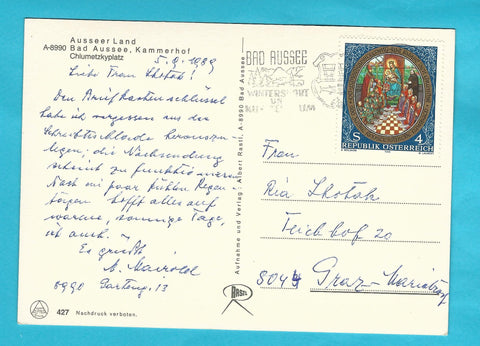 Ausseer Land
A-8990 Bad Aussee, Kammerhof
Chlumetzkyplatz
5.9.1989
Liebe Frau Skofak!
Den Briefkastenschlüssel
habe ich vergessen aus der
Schreibtischlade herauszu-
legen; die Nachsendung
scheint zu funktionieren.
Nach ein paar kühlen Regen-
tagen hofft alles auf
warme, sonnige Tage,
ich auch.
Es grüßt
8990 13
427 Nachdruck verboten.
Aufnahme und Verlag: Albert Rastl, A-8990 Bad Aussee
RASTL
BAD AUSSEE
S 4
REPUBLIK ÖSTERREICH
Frau
Ria Skofak
Teichhof 20
8044 Graz-Mariatrost